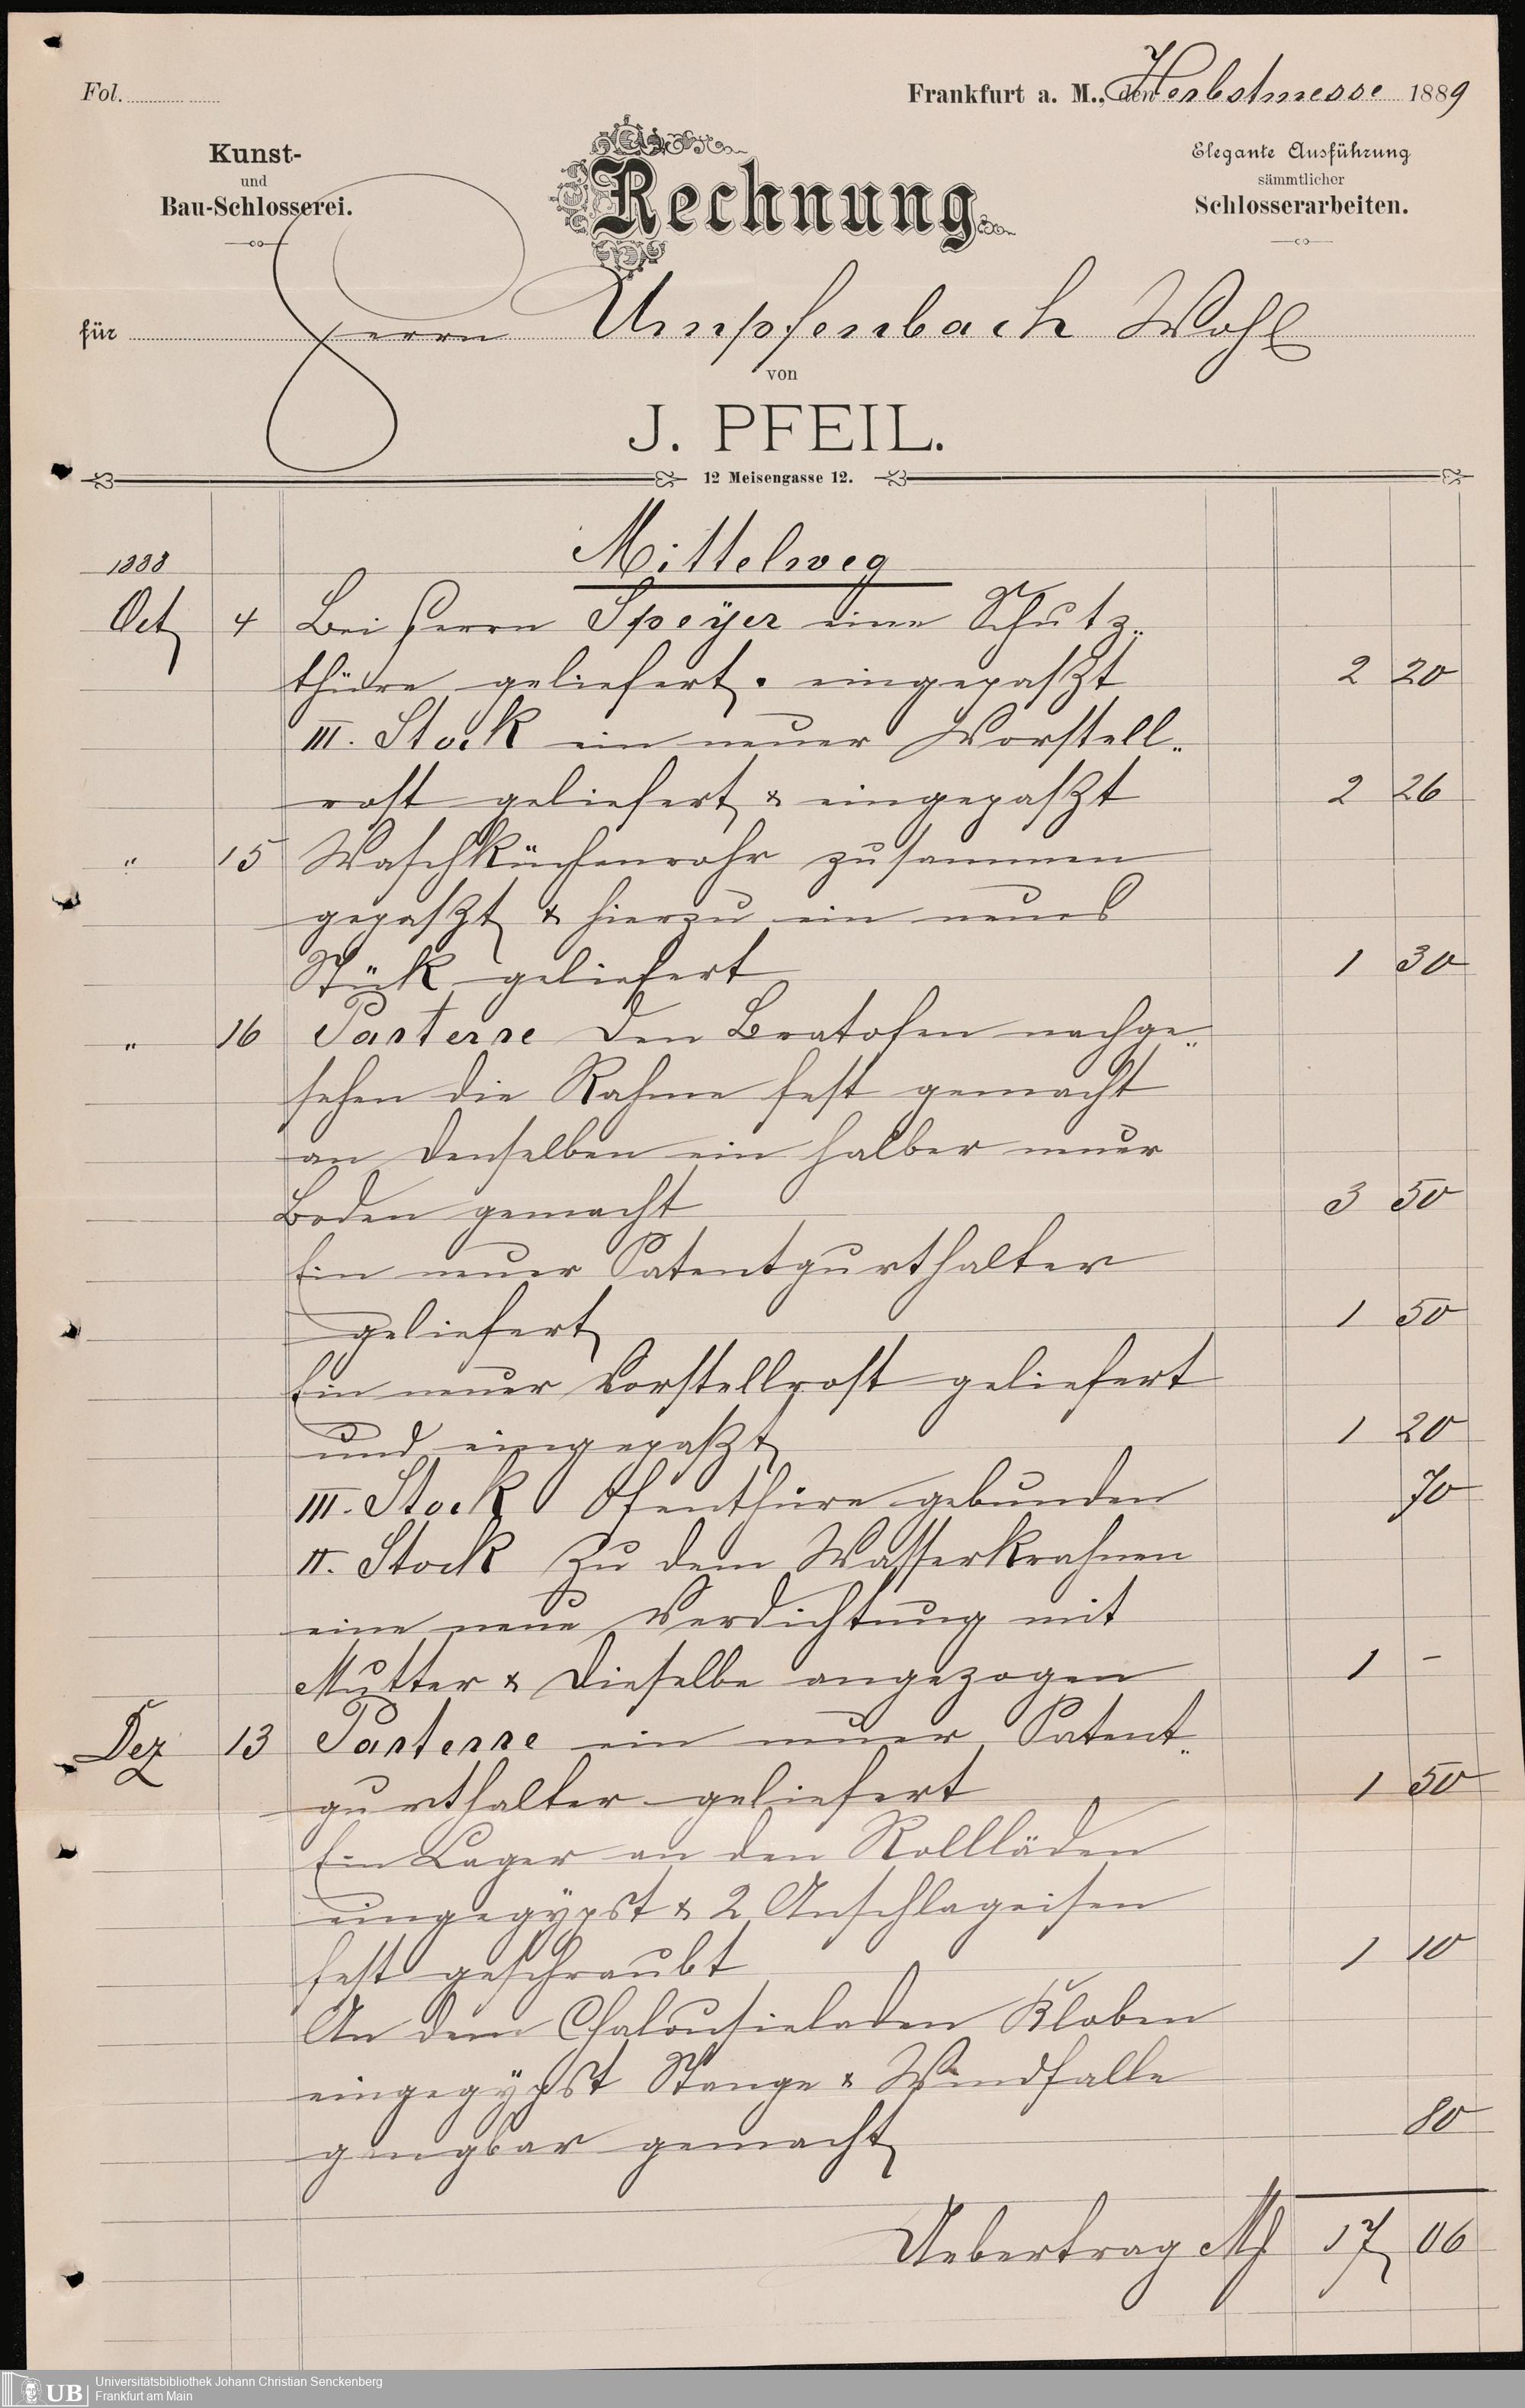 Fol.
Frankfurt a. M., den Herbstmesse 1889
Kunst-
und
Bau-Schlosserei.
Rechnung
Elegante Ausführung
sämmtlicher
Schlosserarbeiten.
für Herrn Umpfenbach Wohl
von
J. PFEIL.
12 Meisengasse 12.
Mittelweg
1888
Oct 4 Bei Herrn Speyer eine Schutz-
thüre geliefert. eingepaßt 2 20
III. Stock ein neuer Vorstell-
rost geliefert & eingepaßt 2 26
" 15 Waschküchenrohr zusammen
gepaßt & hierzu ein neues
Stük geliefert 1 30
" 16 Parterre den Bratofen nachge-
sehen die Rahme fest gemacht
an denselben ein halber neuer
Boden gemacht 3 50
Ein neuer Patentgurthalter
geliefert 1 50
Ein neuer Vorstellrost geliefert
und eingepaßt 1 20
III. Stock Ofenthüre gebunden 70
II. Stock Zu dem Wasserkrahnen
eine neue Verdichtung mit
Mutter & dieselbe angezogen 1 -
Dez 13 Parterre ein neuer Patent-
gurthalter geliefert 1 50
Ein Lager an den Rollläden
eingegÿpst & 2 Anschlageisen
fest geschraubt 1 10
An dem Chalousieladen Kloben
eingegÿpst Stange & Windfalle
gangbar gemacht 80
Uebertrag M 17 06
UB
Universitätsbibliothek Johann Christian Senckenberg
Frankfurt am Main